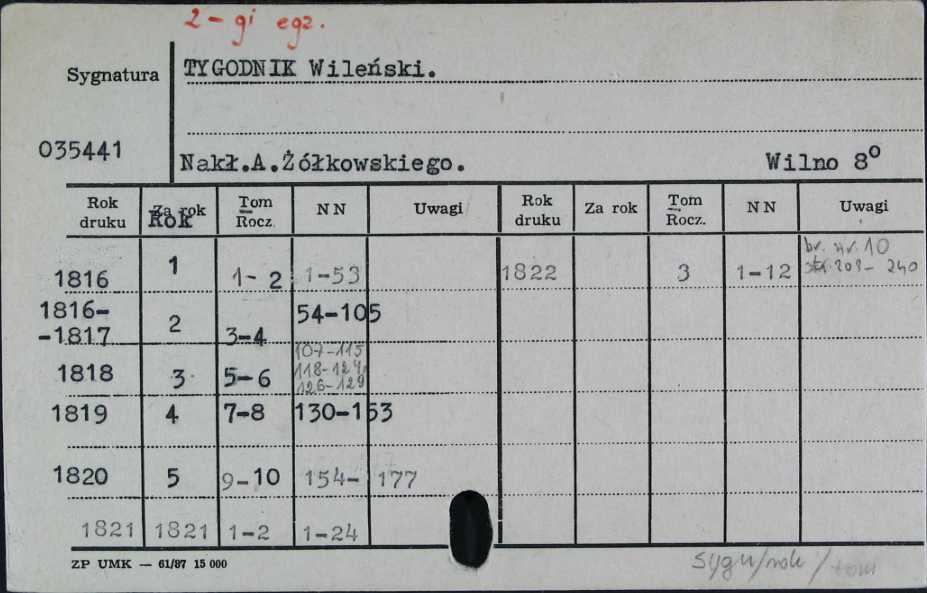 2-gi egz.
Sygnatura TYGODNIK Wileński.
035441 Nakł.A.Żółkowskiego. Wilno 8o
Rok druku Za rok Rok Tom Rocz. NN Uwagi Rok druku Za rok Tom Rocz. NN Uwagi
1816 1 1-2 1-53 1822 3 1-12 br. nr. 10 str. 203-240
1816--1817 2 3-4 54-105
1818 3 5-6 107-115 118-124, 126-129
1819 4 7-8 130-153
1820 5 9-10 154-177
1821 1821 1-2 1-24
ZP UMK — 61/87 15 000
sygn/rok/tom